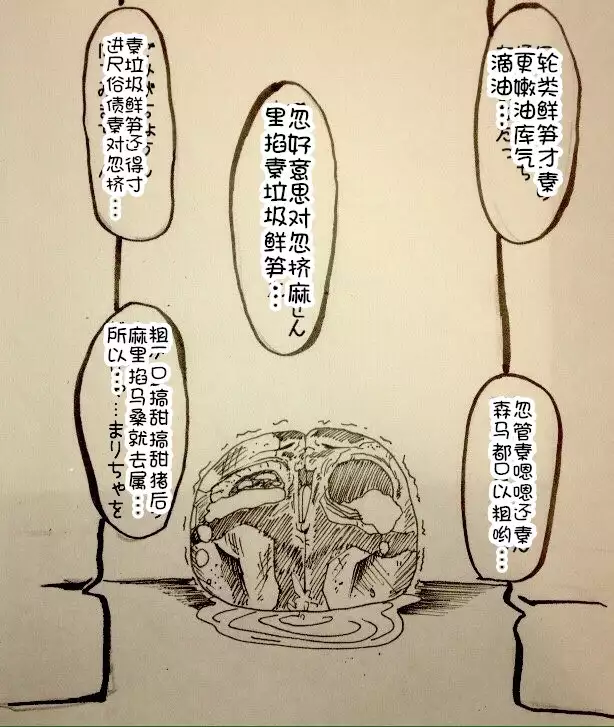 轮类鲜笋才秦
更嫩油库气
滴油…
忽管秦嗯嗯还秦
森马都口以粗哟…
忽好意思对忽挤麻
里掐秦垃圾鲜笋…
秦垃圾鲜笋还得寸
进尺俗债秦对忽挤…
粗
口搞甜搞甜猪后
麻里掐马桑就去属…
所以…
まりちゃを